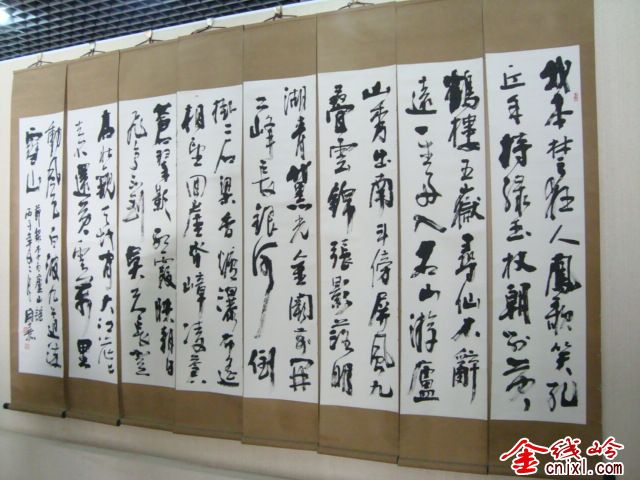 我本楚狂人鳳歌笑孔
丘手持綠玉杖朝別黃
鶴樓五嶽尋仙不辭
遠一生好入名山游廬
山秀出南斗傍屏風九
疊雲錦張影落明
湖青黛光金闕前開
二峰長銀河倒
掛三石梁香爐瀑布遙
相望回崖沓嶂凌蒼
蒼翠影紅霞映朝日
飛鳥不到吳天長登
高壯觀天地間大江茫茫
去不還黃雲萬里
動風色白波九道流
雪山
金线岭
cnlxl.com